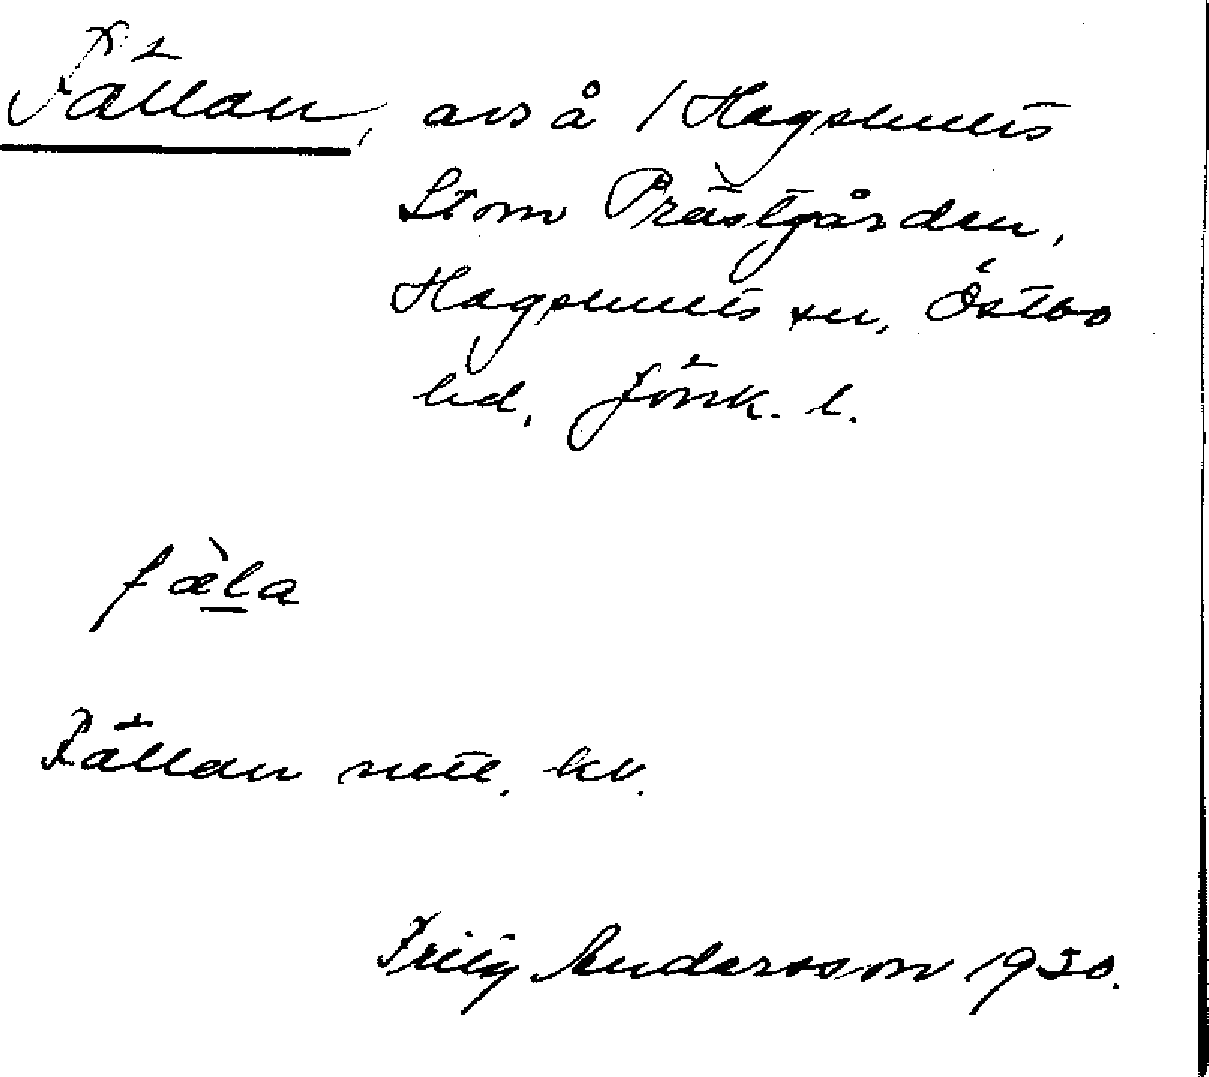 Fällan, avs å 1 Hagshults
Stom Prästgården,
Hagshults sn, Östbo
hd, Jönk. l.
fæ̀la
Fällan mtl. kv.
Fritz Andersson 1930.